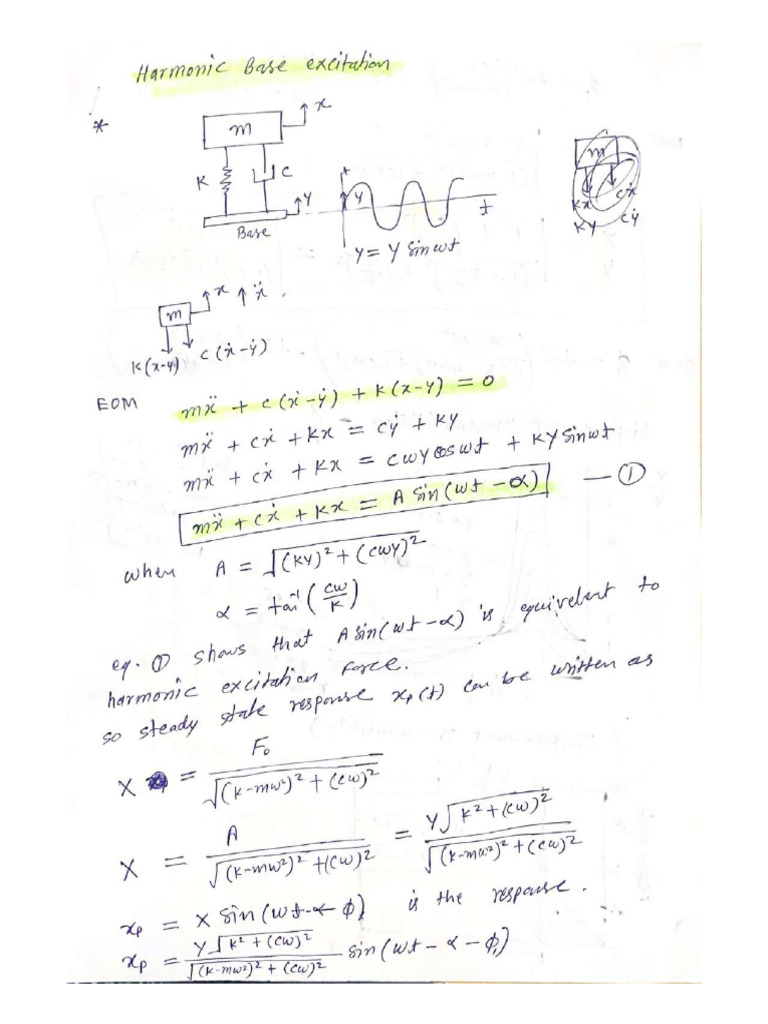 Harmonic Base excitation
*
m
x
K
C
y
Base
+
Y
t
y = Y sin ωt
m
kx
cẋ
ky
cẏ
m
x
ẍ
k(x-y)
c(ẋ-ẏ)
EOM
mẍ + c(ẋ-ẏ) + k(x-y) = 0
mẍ + cẋ + kx = cẏ + ky
mẍ + cẋ + kx = cωy cosωt + ky sinωt
mẍ + cẋ + kx = A sin(ωt - α) — ①
when A = √((ky)² + (cωy)²)
α = tan⁻¹(cω/k)
eq. ① shows that A sin(ωt-α) is equivelent to
harmonic excitation force.
so steady state response xp(t) can be written as
X = F₀ / √((k-mω²)² + (cω)²)
X = A / √((k-mω²)² + (cω)²) = Y√(k² + (cω)²) / √((k-mω²)² + (cω)²)
xp = X sin(ωt-α ϕ) is the response.
xp = Y√(k² + (cω)²) / √((k-mω²)² + (cω)²) sin(ωt - α - ϕ₁)